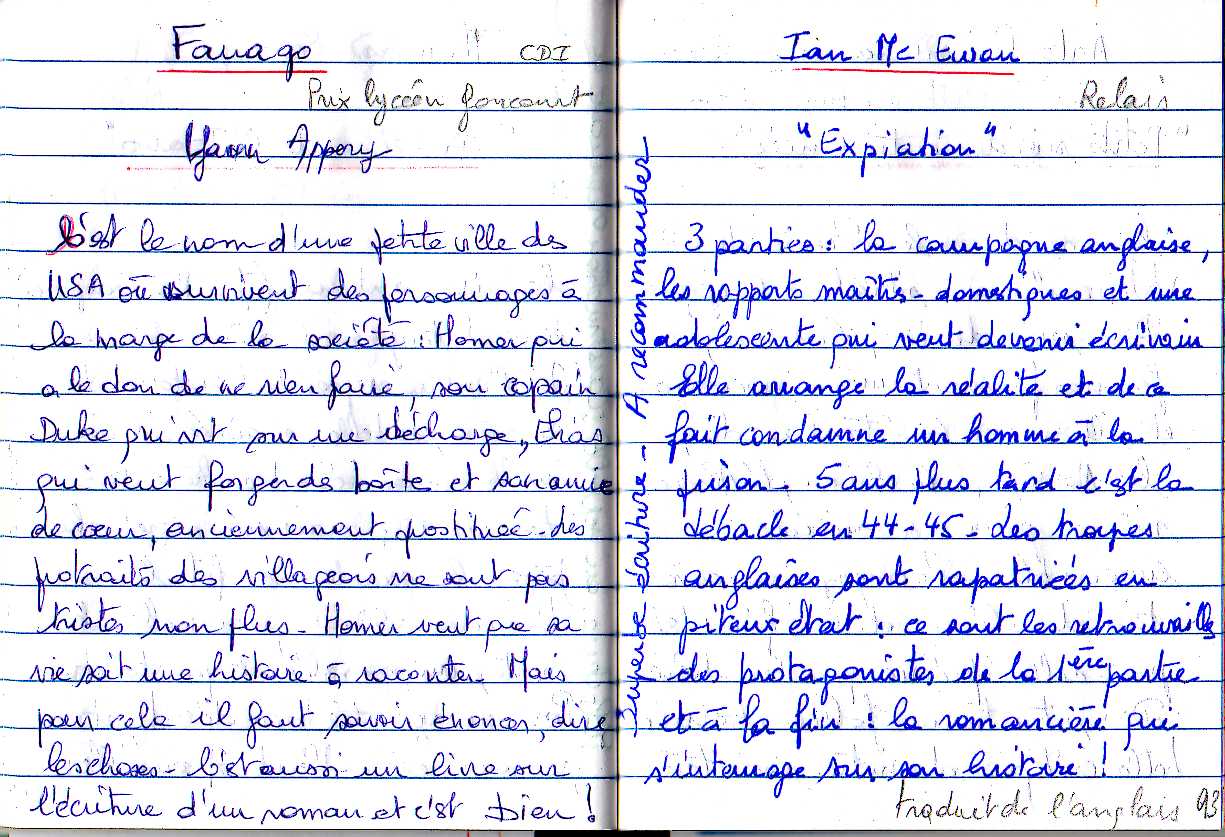 Farrago CDI
Prix lycéen Goncourt
Yann Appery
C'est le nom d'une petite ville des
USA où survivent des personnages à
la marge de la société : Homer qui
a le don de ne rien faire, son copain
Duke qui vit sur une décharge, Elias
qui veut forger ds boîte et son amie
de coeur, anciennement prostituée - des
potraits des villageois ne sont pas
tristes non plus - Homer veut que sa
vie soit une histoire à raconter. Mais
pour cela il faut savoir énoncer, dire
les choses - C'est aussi un livre sur
l'écriture d'un roman et c'est bien !
Superbe écriture - A recommander
Ian Mc Ewan
Relais
"Expiation"
3 parties : la campagne anglaise,
les rapports maîtres - domestiques et une
adolescente qui veut devenir écrivain
Elle arrange la réalité et de ce
fait condamne un homme à la
prison - 5 ans plus tard c'est la
débacle en 44-45 - des troupes
anglaises sont rapatriées en
piteux état : ce sont les retrouvailles
des protagonistes de la 1ère partie
et à la fin : la romancière qui
s'interroge sur son histoire !
traduit de l'anglais 93